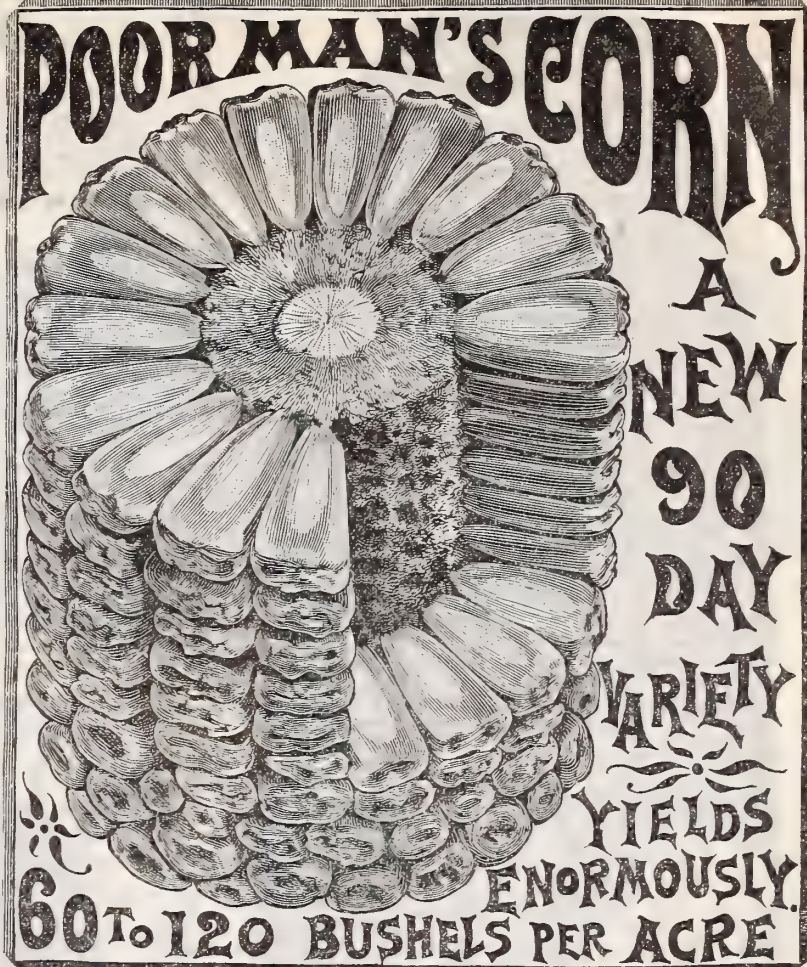 POOR MAN'S CORN
A
NEW
90
DAY
VARIETY
YIELDS
ENORMOUSLY.
60 TO 120 BUSHELS PER ACRE